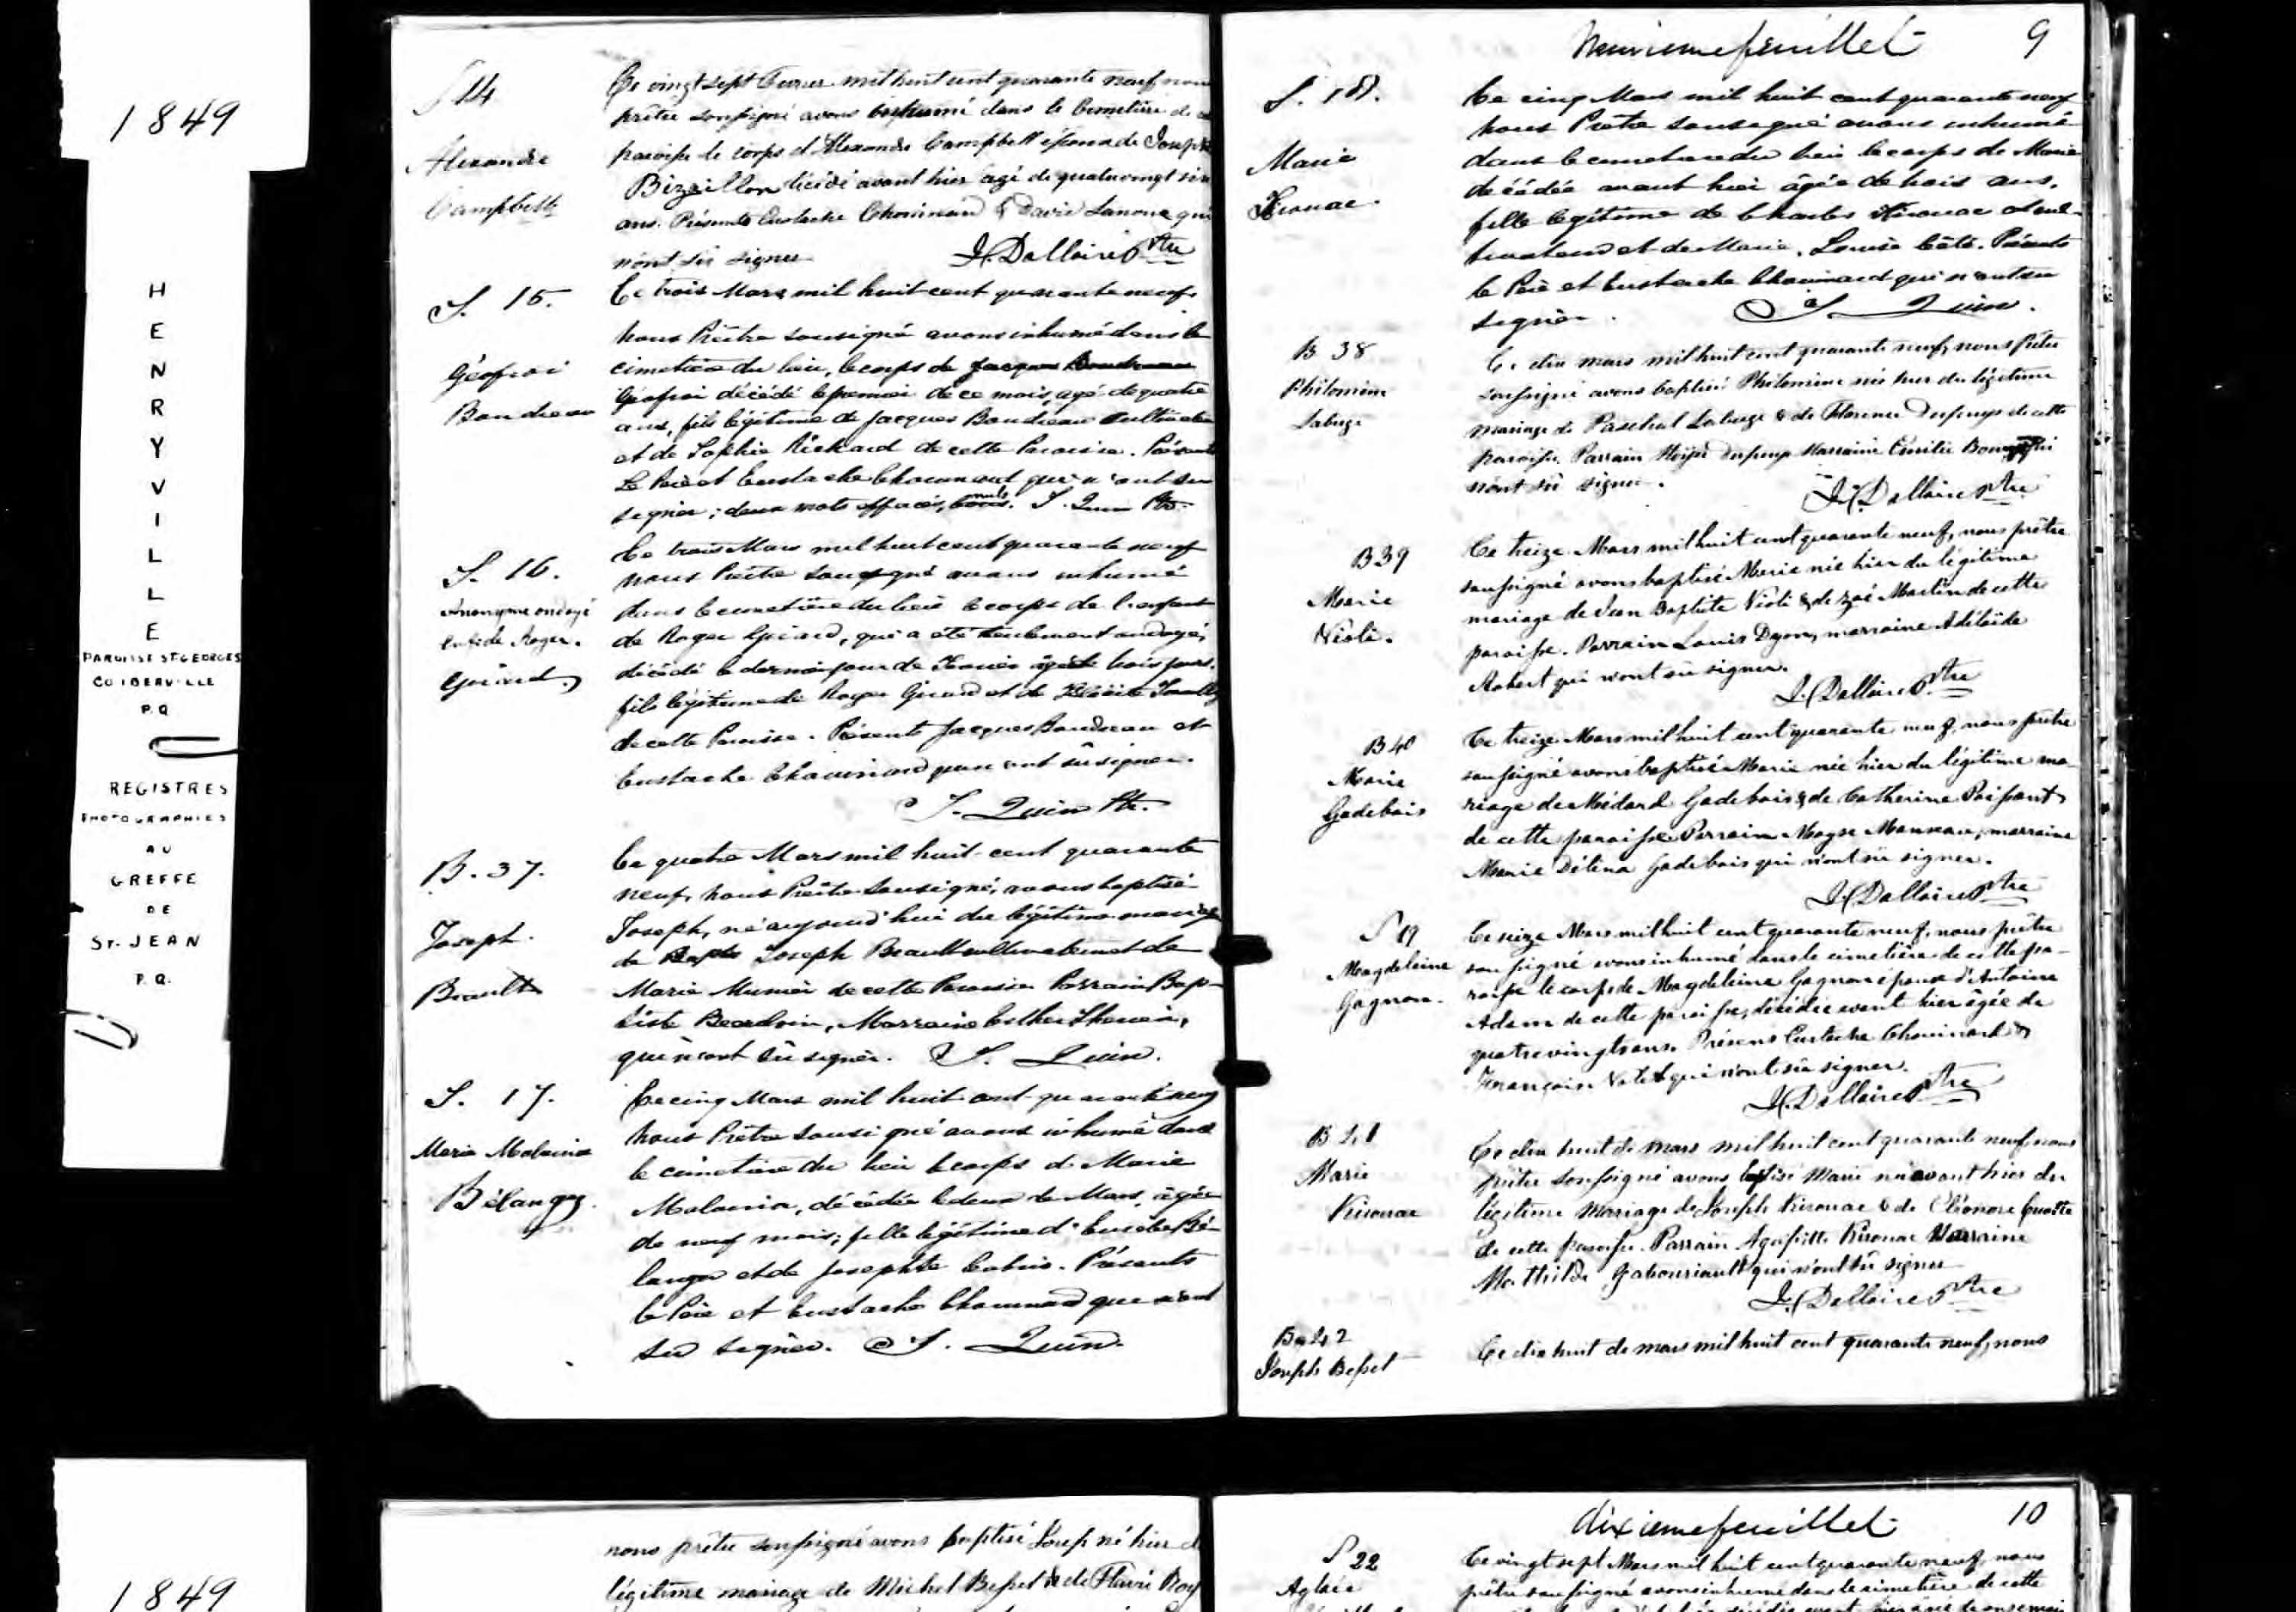 1849
HENRYVILLE
PAROISSE ST-GEORGES
CO IBERVILLE
P.Q
REGISTRES
PHOTOGRAPHIES
AU
GREFFE
DE
ST-JEAN
P.Q.
S 14
Alexandre
Campbell
Ce vingt sept Fevrier mil huit cent quarante neuf nous
prêtre soussigné avons inhumé dans le Cimetière de
paroisse le corps d'Alexandre Campbell de Joseph
Bizaillon décédé avant hier agé de quatrevingt
ans. Présents Eustache Chouinard & David Lanoue qui
n'ont su signer J. Dallaire Ptre
S. 15.
Géofroi
Boudreau
Ce trois Mars mil huit cent quarante neuf,
nous Prêtre sousigné avons inhumé dans le
cimetière du lieu, le corps de Jacques Boudreau
Géofroi décédé le premier de ce mois, agé de quatre
ans, fils légitime de Jacques Boudreau cultivateur
et de Sophie Richard de cette Paroisse. Présents
Le Père et Eustache Chouinard qui n'ont su
signer; deux mots effacés, nuls. S. Quin Ptre
S. 16.
Anonyme ondoyé
de Roger
Girard
Ce trois Mars mil huit cent quarante neuf
nous Prêtre sousigné avons inhumé
dans le cimetière du lieu le corps de l'enfant
de Roger Girard, qui a été seulement ondoyé,
décédé le dernier jour de agé de trois jours.
fils légitime de Roger Girard et de
de cette Paroisse. Présents Jacques Boudreau et
Eustache Chouinard qui n'ont sû signer.
S. Quin Ptr.
B. 37.
Joseph.
Brault
Ce quatre Mars mil huit-cent quarante
neuf, nous Prêtre Sousigné, avons baptisé
Joseph, né aujourd'hui du légitime mariage
de Joseph Brault cultivateur et de
Marie Munier de cette Paroisse Parrain Bap-
tiste Beaudoin, Marraine Esther
qui n'ont sû signer. S. Quin.
S. 17.
Marie Malvina
Bélanger.
Ce cinq Mars mil huit cent quarante neuf
nous Prêtre Sousigné avons inhumé dans
le cimetière du lieu le corps de Marie
Malvina, décédée le deux de Mars, agée
de neuf mois; fille légitime d'Eusèbe Bé-
langer et de Josephte. Présents
le Père et Eustache Chouinard qui n'ont
su signer. S. Quin.
neuvieme feuillet 9
S. 18.
Marie
Kirouac.
Ce cinq Mars mil huit cent quarante neuf
nous Prêtre sousigné avons inhumé
dans le cimetière du lieu le corps de Marie
décédée avant hier âgée de trois ans,
fille légitime de Charles Kirouac cul-
tivateur et de Marie Louise Côté. Présents
le Père et Eustache Chouinard qui n'ont su
signer. S. Quin.
B 38
Philomène
Laberge
Ce dix mars mil huit cent quarante neuf, nous Prêtre
soussigné avons baptisé Philomène née hier du légitime
mariage de Paschal Laberge & de Florence de cette
paroisse. Parrain Marraine Emilie qui
n'ont sû signer.
J. Dallaire Ptre
B 39
Marie
Viola.
Ce treize Mars mil huit cent quarante neuf, nous prêtre
soussigné avons baptisé Marie née hier du légitime
mariage de Jean Baptiste & de Zoé Martin de cette
paroisse. Parrain Louis Dyon, marraine Adélaïde
Robert qui n'ont su signer.
J. Dallaire Ptre
B 40
Marie
Gadebois
Ce treize Mars mil huit cent quarante neuf, nous prêtre
soussigné avons baptisé Marie née hier du légitime ma-
riage de Médard Gadebois & de Catherine Paisant
de cette paroisse Parrain Moyse Manseau, marraine
Marie Délina Gadebois qui n'ont su signer.
J. Dallaire Ptre
S 19
Magdeleine
Gagnon.
Ce seize Mars mil huit cent quarante neuf, nous prêtre
soussigné avons inhumé dans le cimetière de cette pa-
roisse le corps de Magdeleine Gagnon épouse d'Antoine
Adam de cette paroisse, décédée avant hier âgée de
quatrevingts ans. Présens Eustache Chouinard &
François qui n'ont su signer.
J. Dallaire Ptre
B 41
Marie
Kirouac
Ce dix huit de mars mil huit cent quarante neuf, nous
prêtre soussigné avons baptisé Marie née avant hier du
légitime Mariage de Joseph Kirouac & de Eléonore
de cette paroisse. Parrain Agapitte Kirouac Marraine
Mathilde Gabouriault qui n'ont sû signer
J. Dallaire Ptre
B. 42
Joseph Besset
Ce dix huit de mars mil huit cent quarante neuf, nous
1849
nous prêtre soussigné avons baptisé Josep né hier
légitime mariage de Michel Besset & de Flavie Roy
dixieme feuillet 10
S 22
Aglaée
Ce vingt sept Mars mil huit cent quarante neuf, nous
prêtre soussigné avons inhumé dans le cimetière de cette